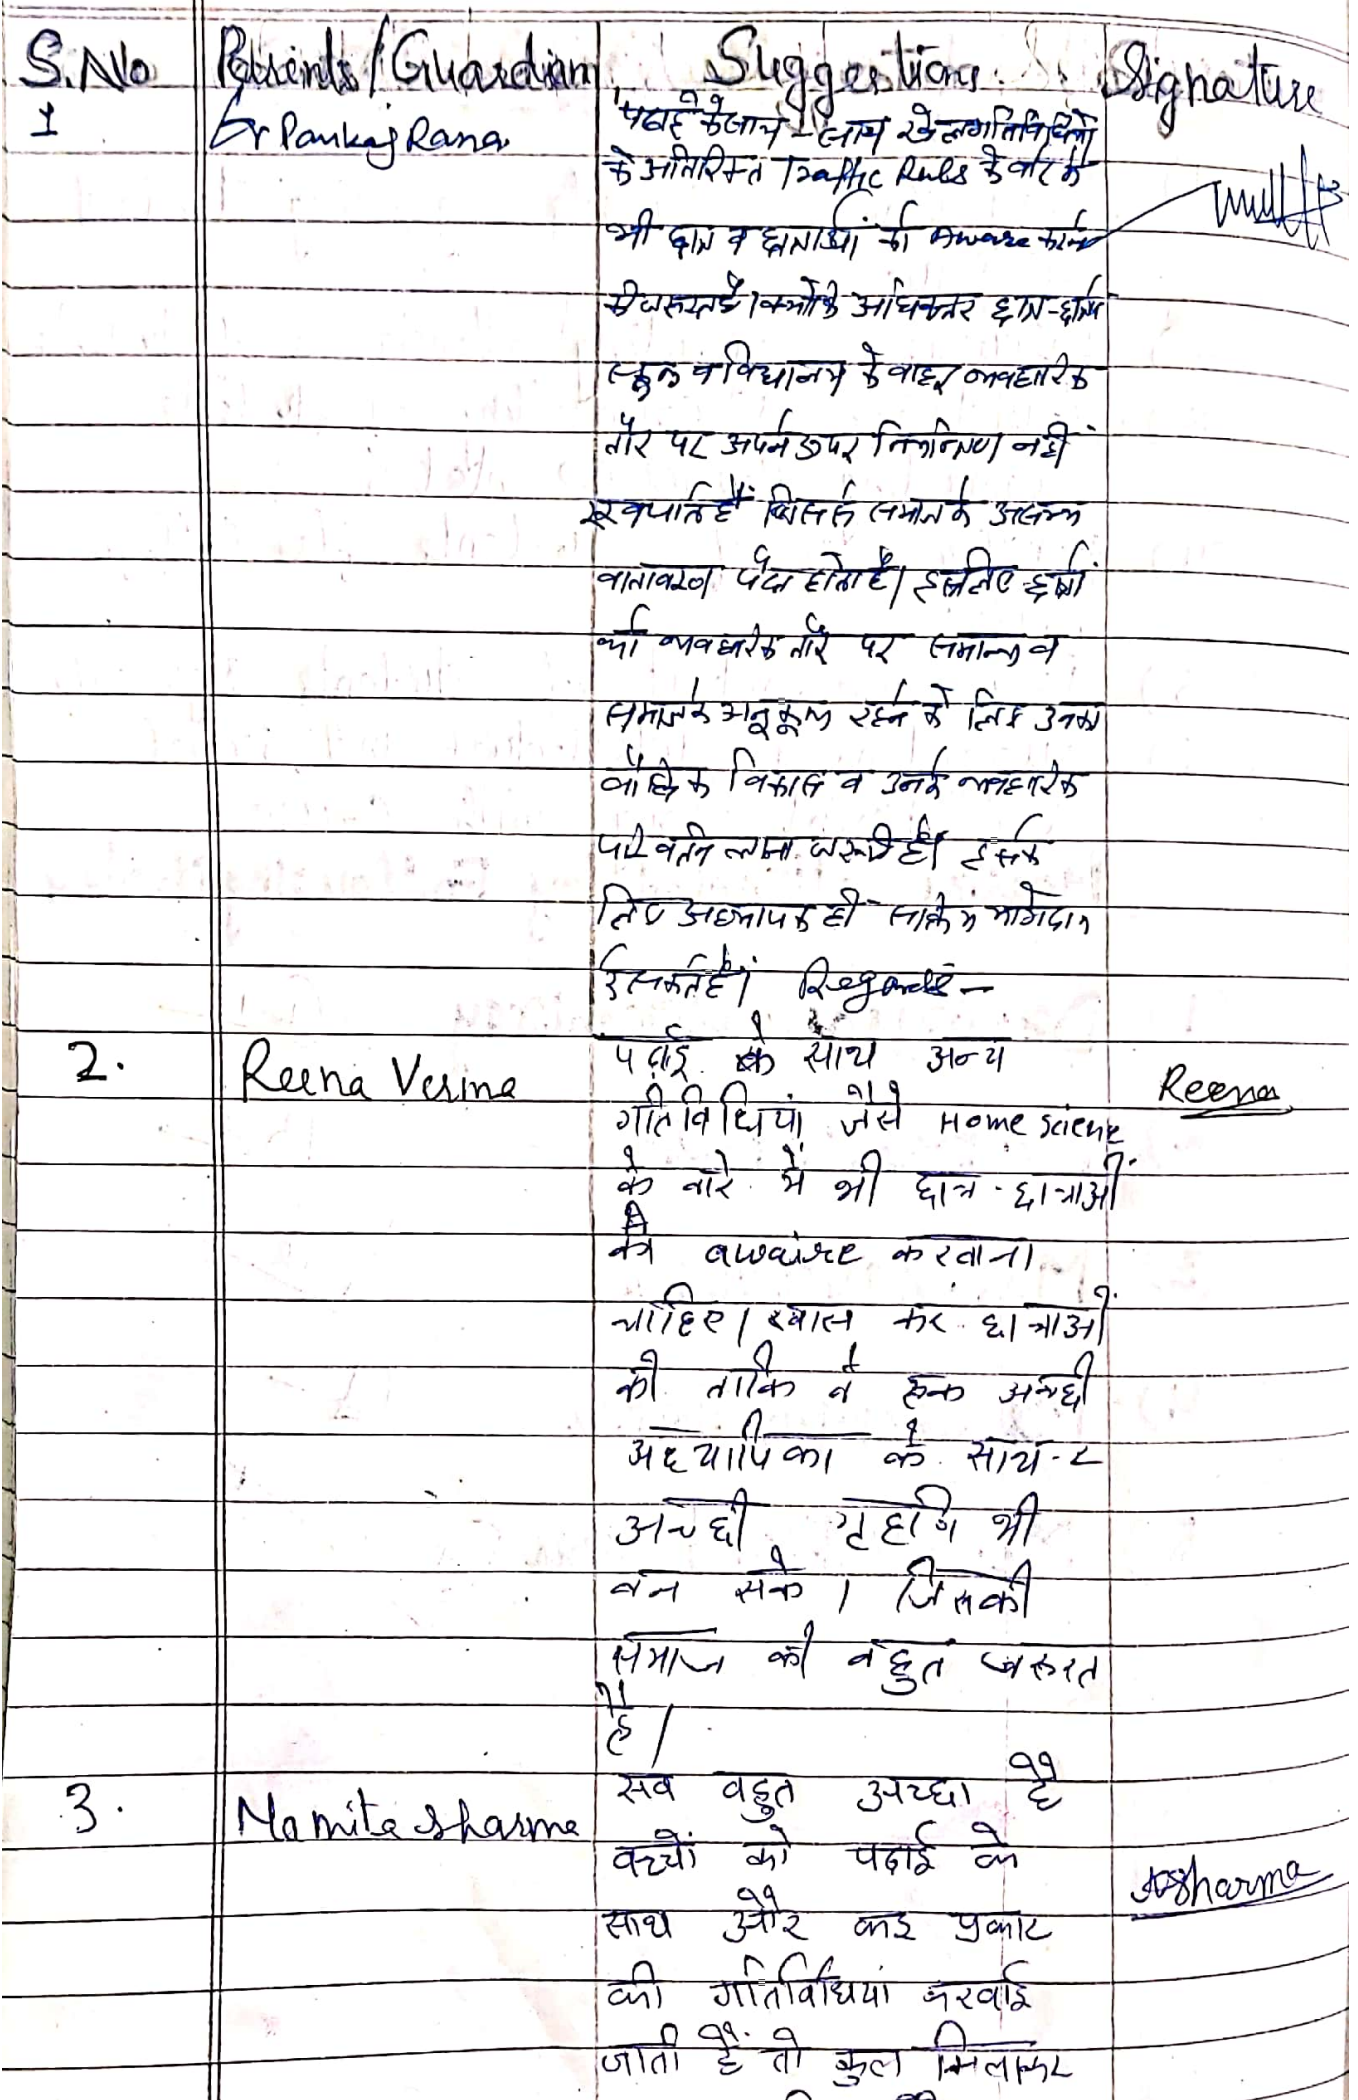 S.No Parents/Guardian Suggestions Signature
1 Er Pankaj Rana पढाई के साथ-साथ खेल गतिविधियों
के अतिरिक्त Traffic Rules के बारे में
भी छात्र व छात्राओं को Aware करने
की जरूरत है। क्योंकि अधिकतर छात्र-छात्राएं
स्कूल व विद्यालय के बाहर व्यवहारिक
तौर पर अपने ऊपर नियन्त्रण नहीं
रख पाते हैं जिससे समाज के
वातावरण पैदा होता है। इसलिए छात्रों
को व्यवहारिक तौर पर व
समाज के अनुकूल रहने के लिए उनका
बौद्धिक विकास व उनके व्यवहारिक
परिवर्तन लाना जरूरी है। इसके
लिए अध्यापक ही योगदान
दे सकते हैं। Regards-
2. Reena Verma पढ़ाई के साथ अन्य Reena
गतिविधियां जैसे Home Science
के बारे में भी छात्र-छात्राओं
को awaire करवाना
चाहिए। खास कर छात्राओं
को ताकि वे एक अच्छी
अध्यापिका के साथ-2
अच्छी गृहणि भी
बन सके। जिसकी
समाज को बहुत जरूरत
है।
3. Namita Sharma सब बहुत अच्छा है
बच्चों को पढ़ाई के NSharma
साथ और कई प्रकार
की गतिविधियां करवाई
जाती हैं तो कुल मिलाकर